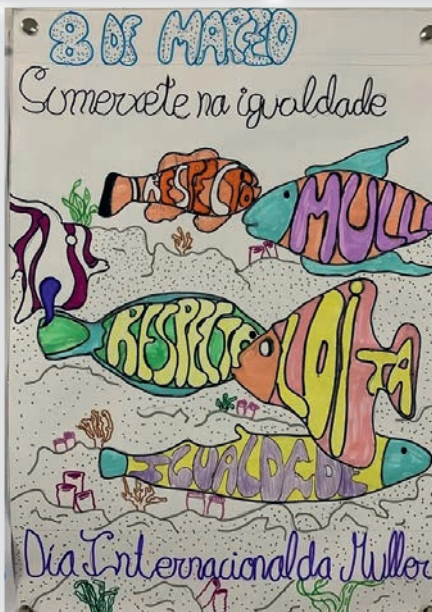 8 DE MARZO
Sumerxete na igualdade
RESPECTO
MULL
RESPECTE
LOITA
IGUALDADE
Día Internacional da Muller